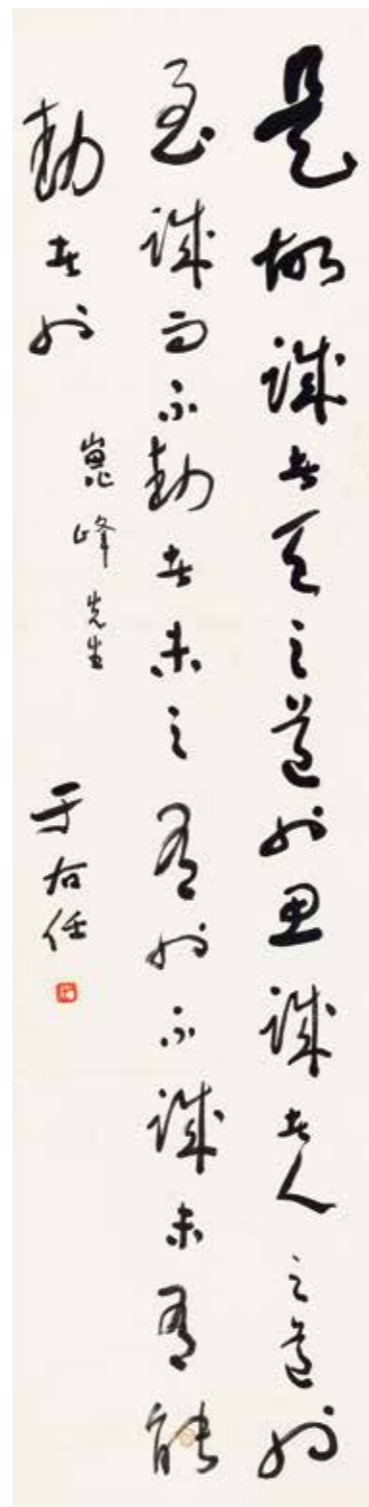 是故誠者天之道也思誠者人之道也
至誠而不動者未之有也不誠未有能
動者也
崑峰先生
于右任